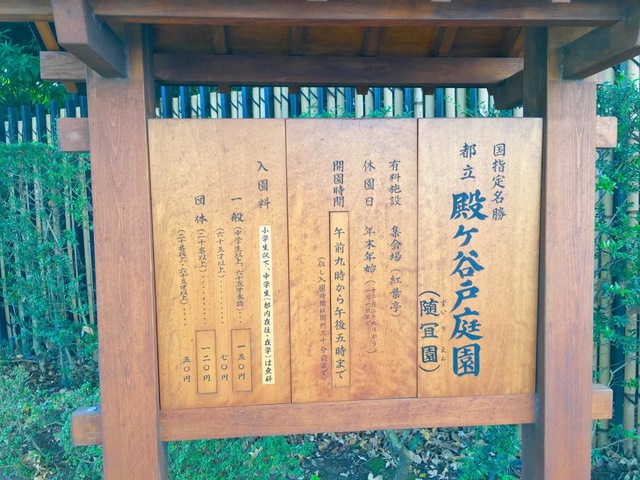 国指定名勝
都立 殿ヶ谷戸庭園
(随冝園)
ずいぎえん
有料施設 集会場(紅葉亭)
休園日 年末年始
開園時間 午前九時から午後五時まで
(但し入園時間は閉園三十分前まで)
入園料 小学生以下、中学生(都内在住・在学)は無料
一般(中学生以上、六十五才未満)……一五〇円
(六十五才以上)……七〇円
団体(二十名以上)……一二〇円
(二十名以上、六十五才以上)……五〇円